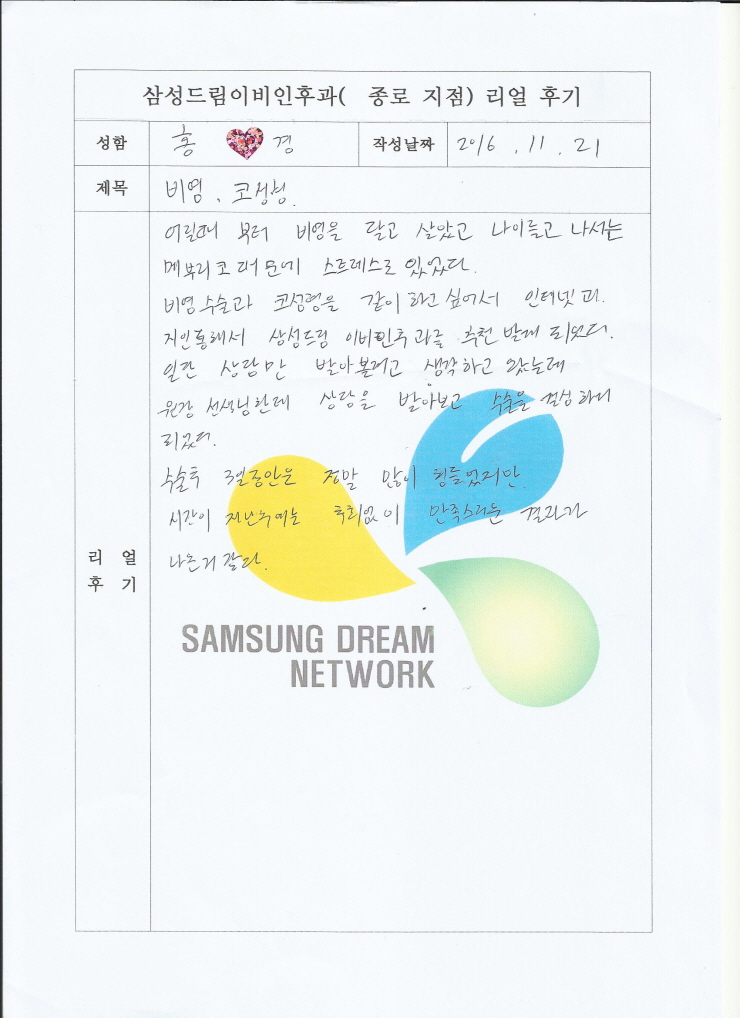 삼성드림이비인후과( 종로 지점) 리얼 후기
성함 홍 경 작성날짜 2016 . 11 . 21
제목 비염 , 코성형.
어릴때 부터 비염을 달고 살았고 나이들고 나서는
메부리코 때문에 스트레스로 있었다.
비염수술과 코성형을 같이 하고 싶어서 인터넷과.
지인통해서 삼성드림 이비인후과를 추천 받게 되었다.
일단 상담만 받아볼려고 생각하고 왔는데
원장 선생님한테 상담을 받아보고 수술을 결심하게
되었다.
수술후 3일동안은 정말 많이 힘들었지만
시간이 지난후에는 후회없이 만족스러운 결과가
나온거 같다.
리 얼
후 기
SAMSUNG DREAM
NETWORK